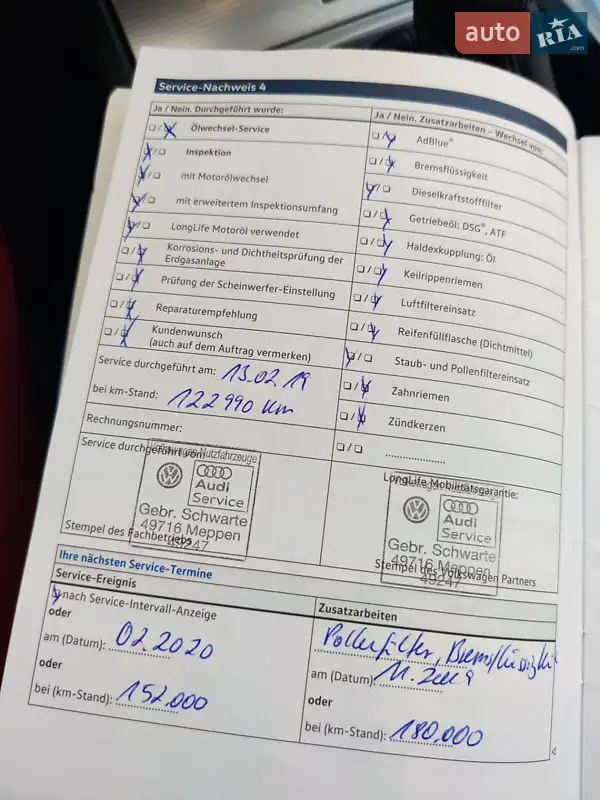 auto RIA .com
Service-Nachweis 4
Ja / Nein. Durchgeführt wurde:
Ölwechsel-Service
Inspektion
mit Motorölwechsel
mit erweitertem Inspektionsumfang
LongLife Motoröl verwendet
Korrosions- und Dichtheitsprüfung der
Erdgasanlage
Prüfung der Scheinwerfer-Einstellung
Reparaturempfehlung
Kundenwunsch
(auch auf dem Auftrag vermerken)
Service durchgeführt am: 13.02.19
bei km-Stand: 122990 km
Rechnungsnummer:
Service durchgeführt von:
Volkswagen Nutzfahrzeuge
Audi
Service
Gebr. Schwarte
49716 Meppen
49247
Stempel des Fachbetriebs
Ja / Nein. Zusatzarbeiten – Wechsel von:
AdBlue®
Bremsflüssigkeit
Dieselkraftstofffilter
Getriebeöl: DSG®, ATF
Haldexkupplung: Öl
Keilrippenriemen
Luftfiltereinsatz
Reifenfüllflasche (Dichtmittel)
Staub- und Pollenfiltereinsatz
Zahnriemen
Zündkerzen
LongLife Mobilitätsgarantie:
Volkswagen Nutzfahrzeuge
Audi
Service
Gebr. Schwarte
49716 Meppen
49247
Stempel des Volkswagen Partners
Ihre nächsten Service-Termine
Service-Ereignis
nach Service-Intervall-Anzeige
oder
am (Datum): 02.2020
oder
bei (km-Stand): 152.000
Zusatzarbeiten
Pollenfilter, Bremsflüssigkeit
am (Datum): 11.
oder
bei (km-Stand): 180.000